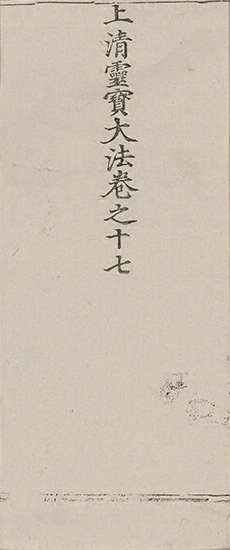 上清靈寳大法卷之十七